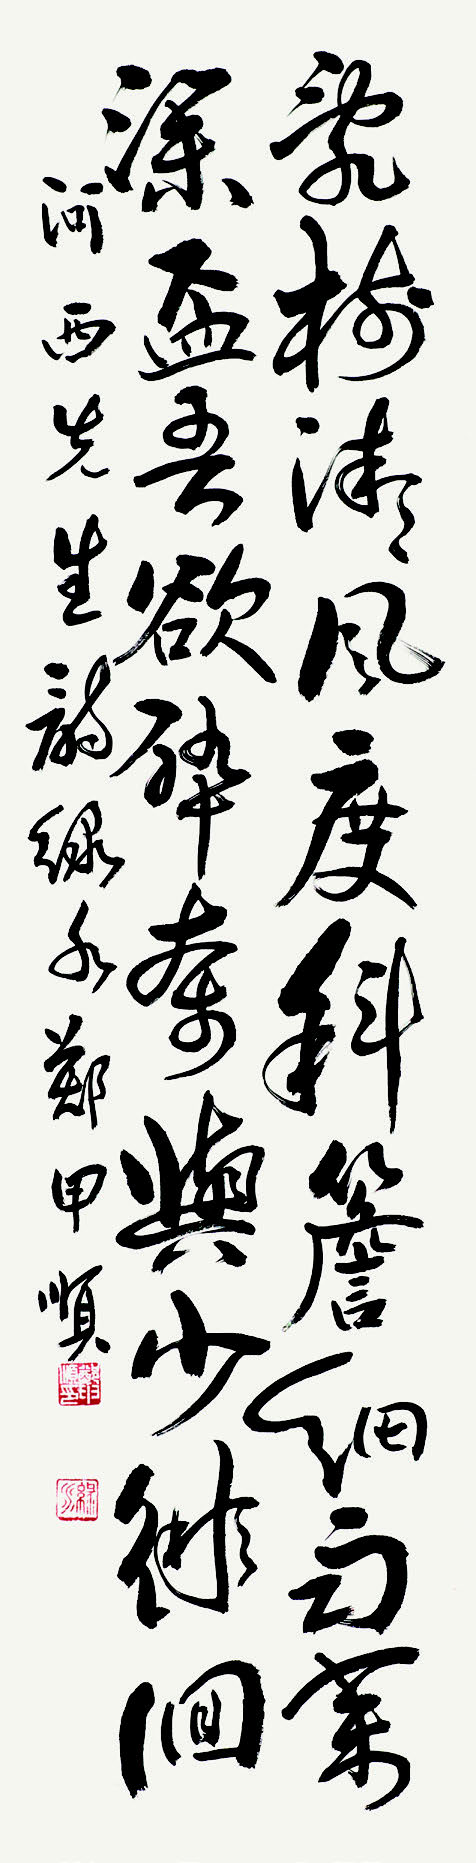 亂樹清風度斜簷細雨來
深盃吾欲醉奇興少徘徊
河西先生詩 綠水鄭甲順